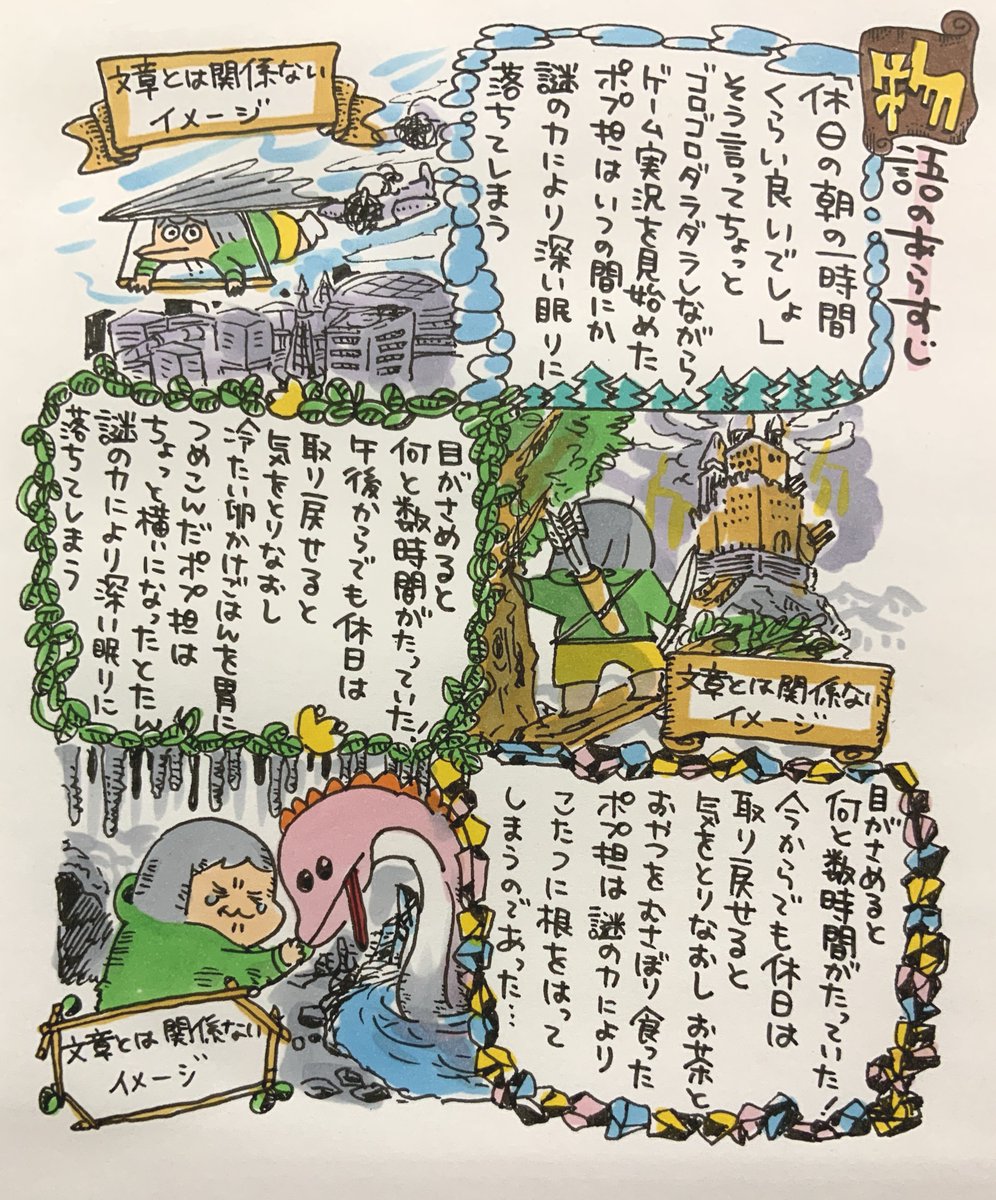 物
語のあらすじ
「休日の朝の一時間
くらい良いでしょ」
そう言ってちょっと
ゴロゴロダラダラしながら
ゲーム実況を見始めた
ポプ担はいつの間にか
謎の力により深い眠りに
落ちてしまう
文章とは関係ない
イメージ
文章とは関係ない
イメージ
目がさめると
何と数時間がたっていた!
午後からでも休日は
取り戻せると
気をとりなおし
冷たい卵かけごはんを胃に
つめこんだポプ担は
ちょっと横になったとたん
謎の力により深い眠りに
落ちてしまう
目がさめると
何と数時間がたっていた!
今からでも休日は
取り戻せると
気をとりなおし お茶と
おやつをむさぼり食った
ポプ担は謎の力により
こたつに根をはって
しまうのであった…
文章とは関係ない
イメージ